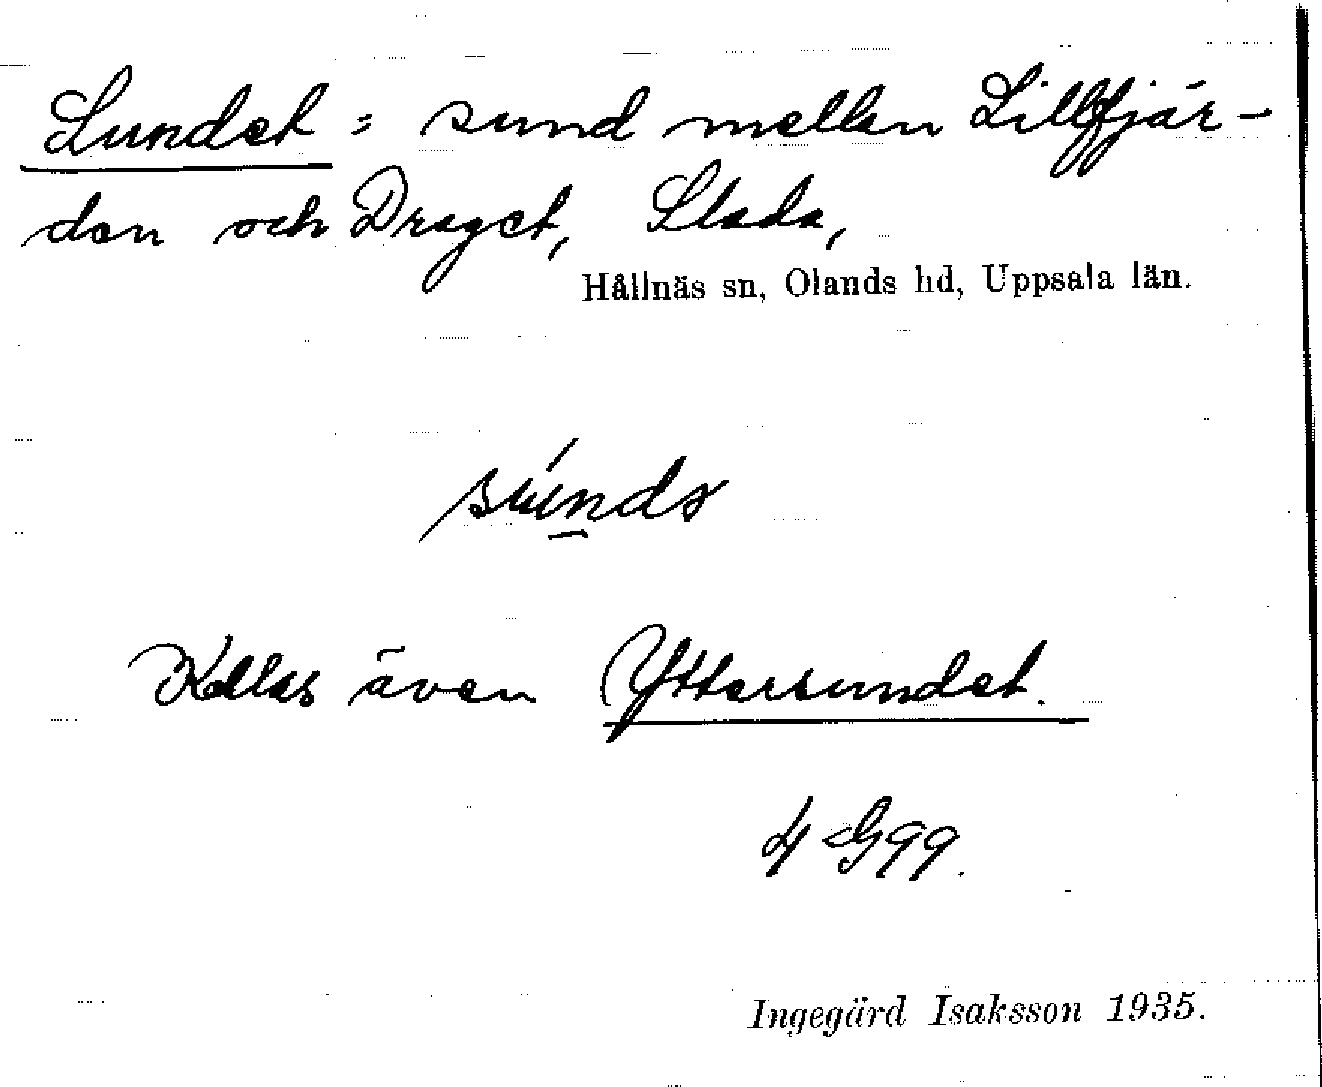 Sundet = sund mellan Lillfjär-
den och Draget, Slada,
Hållnäs sn, Olands hd, Uppsala län.
Kallas även Yttersundet.
4 G99.
Ingegärd Isaksson 1935.